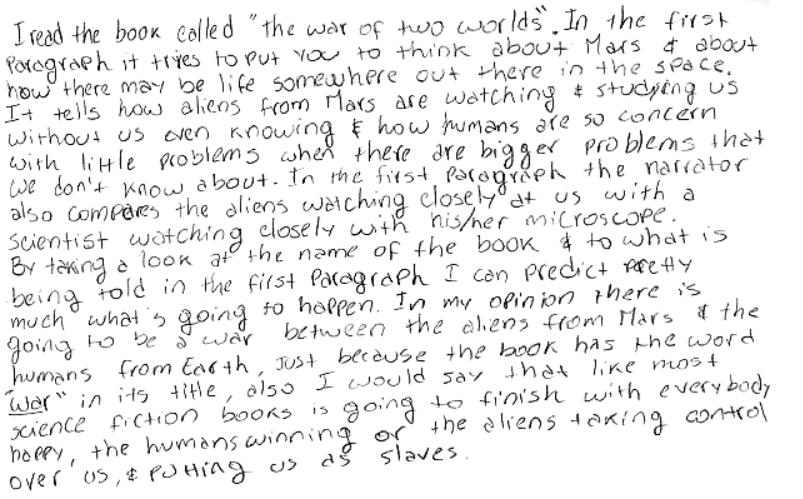 I read the book called "the war of two worlds". In the first
Paragraph it tries to put you to think about Mars & about
how there may be life somewhere out there in the space.
It tells how aliens from Mars are watching & studying us
without us even knowing & how humans are so concern
with little problems when there are bigger problems that
we don't know about. In the first Paragraph the narrator
also compares the aliens watching closely at us with a
scientist watching closely with his/her microscope.
By taking a look at the name of the book & to what is
being told in the first Paragraph I can predict pretty
much what's going to happen. In my opinion there is
going to be a war between the aliens from Mars & the
humans from Earth, just because the book has the word
"war" in its title, also I would say that like most
science fiction books is going to finish with everybody
happy, the humans winning or the aliens taking control
over us, & putting us as slaves.